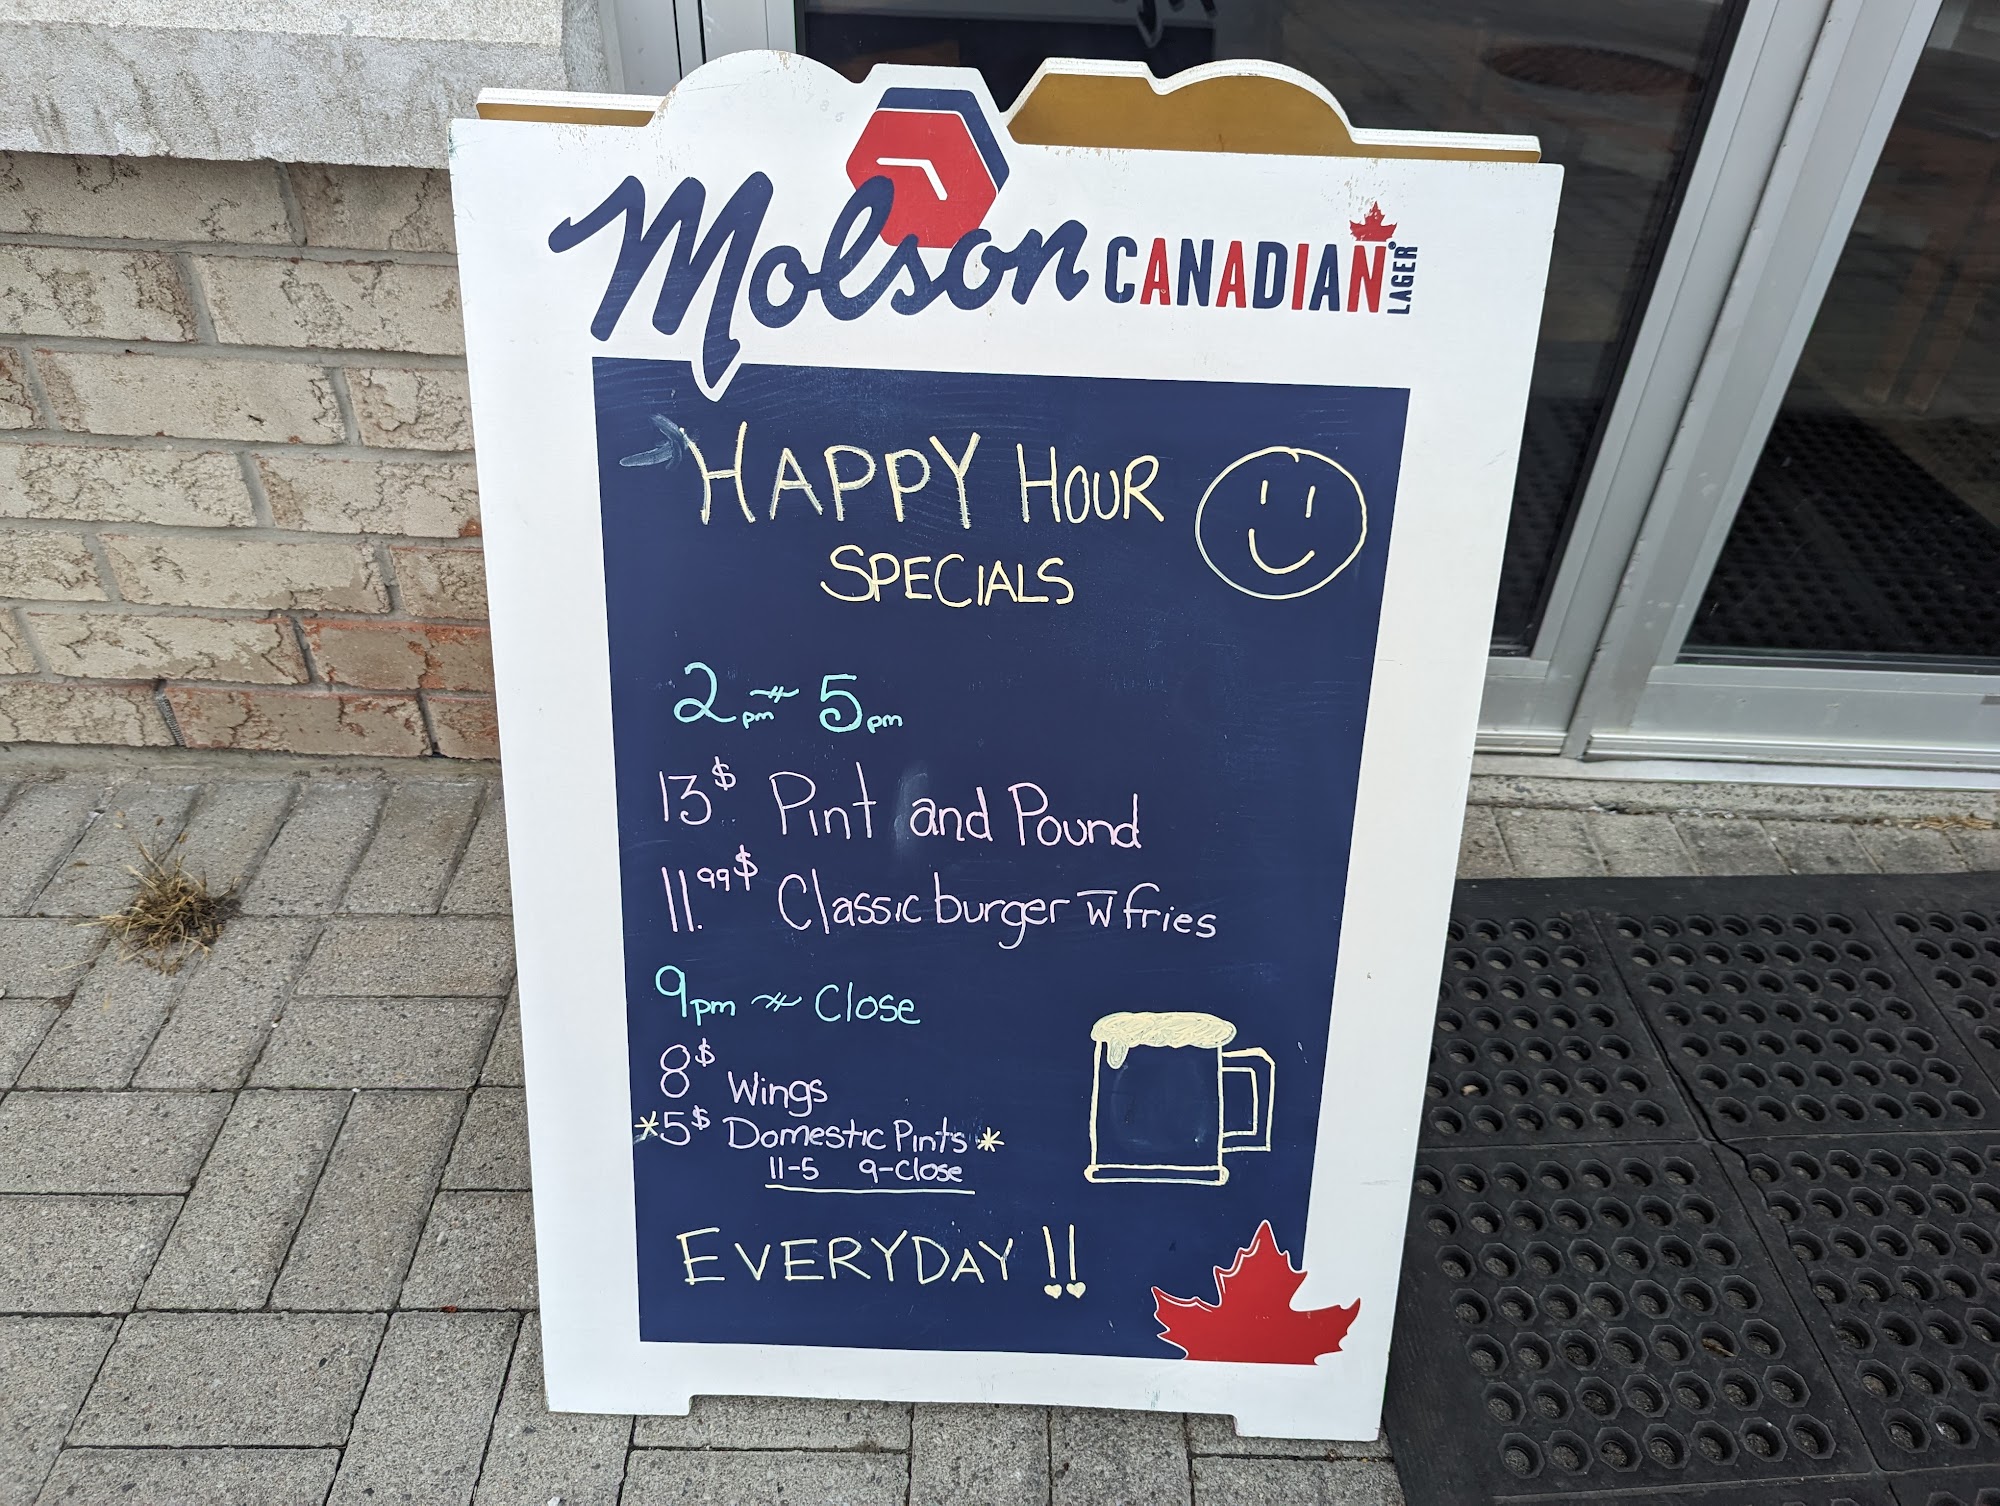 Molson CANADIAN LAGER
HAPPY HOUR
SPECIALS
2pm ~ 5pm
13$ Pint and Pound
11.99$ Classic burger w̅ fries
9pm ~ Close
8$ Wings
*5$ Domestic Pints*
11-5 9-Close
EVERYDAY !!